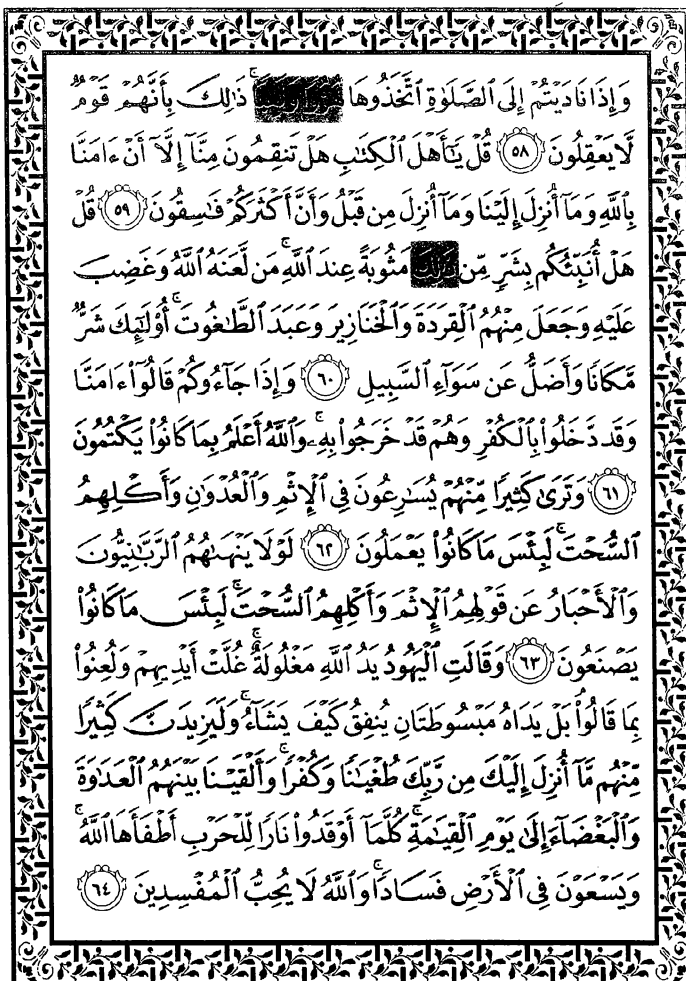 وَإِذَا نَادَيْتُمْ إِلَى ٱلصَّلَوٰةِ ٱتَّخَذُوهَا ذَٰلِكَ بِأَنَّهُمْ قَوْمٌ
لَّا يَعْقِلُونَ ﴿٥٨﴾ قُلْ يَٰٓأَهْلَ ٱلْكِتَٰبِ هَلْ تَنقِمُونَ مِنَّآ إِلَّآ أَنْ ءَامَنَّا
بِٱللَّهِ وَمَآ أُنزِلَ إِلَيْنَا وَمَآ أُنزِلَ مِن قَبْلُ وَأَنَّ أَكْثَرَكُمْ فَٰسِقُونَ ﴿٥٩﴾ قُلْ
هَلْ أُنَبِّئُكُم بِشَرٍّ مِّن ذَٰلِكَ مَثُوبَةً عِندَ ٱللَّهِ ۚ مَن لَّعَنَهُ ٱللَّهُ وَغَضِبَ
عَلَيْهِ وَجَعَلَ مِنْهُمُ ٱلْقِرَدَةَ وَٱلْخَنَازِيرَ وَعَبَدَ ٱلطَّٰغُوتَ ۚ أُو۟لَٰٓئِكَ شَرٌّ
مَّكَانًا وَأَضَلُّ عَن سَوَآءِ ٱلسَّبِيلِ ﴿٦٠﴾ وَإِذَا جَآءُوكُمْ قَالُوٓا۟ ءَامَنَّا
وَقَد دَّخَلُوا۟ بِٱلْكُفْرِ وَهُمْ قَدْ خَرَجُوا۟ بِهِۦ ۚ وَٱللَّهُ أَعْلَمُ بِمَا كَانُوا۟ يَكْتُمُونَ
﴿٦١﴾ وَتَرَىٰ كَثِيرًا مِّنْهُمْ يُسَٰرِعُونَ فِى ٱلْإِثْمِ وَٱلْعُدْوَٰنِ وَأَكْلِهِمُ
ٱلسُّحْتَ ۚ لَبِئْسَ مَا كَانُوا۟ يَعْمَلُونَ ﴿٦٢﴾ لَوْلَا يَنْهَىٰهُمُ ٱلرَّبَّٰنِيُّونَ
وَٱلْأَحْبَارُ عَن قَوْلِهِمُ ٱلْإِثْمَ وَأَكْلِهِمُ ٱلسُّحْتَ ۚ لَبِئْسَ مَا كَانُوا۟
يَصْنَعُونَ ﴿٦٣﴾ وَقَالَتِ ٱلْيَهُودُ يَدُ ٱللَّهِ مَغْلُولَةٌ ۚ غُلَّتْ أَيْدِيهِمْ وَلُعِنُوا۟
بِمَا قَالُوا۟ ۘ بَلْ يَدَاهُ مَبْسُوطَتَانِ يُنفِقُ كَيْفَ يَشَآءُ ۚ وَلَيَزِيدَنَّ كَثِيرًا
مِّنْهُم مَّآ أُنزِلَ إِلَيْكَ مِن رَّبِّكَ طُغْيَٰنًا وَكُفْرًا ۚ وَأَلْقَيْنَا بَيْنَهُمُ ٱلْعَدَٰوَةَ
وَٱلْبَغْضَآءَ إِلَىٰ يَوْمِ ٱلْقِيَٰمَةِ ۚ كُلَّمَآ أَوْقَدُوا۟ نَارًا لِّلْحَرْبِ أَطْفَأَهَا ٱللَّهُ ۚ
وَيَسْعَوْنَ فِى ٱلْأَرْضِ فَسَادًا ۚ وَٱللَّهُ لَا يُحِبُّ ٱلْمُفْسِدِينَ ﴿٦٤﴾